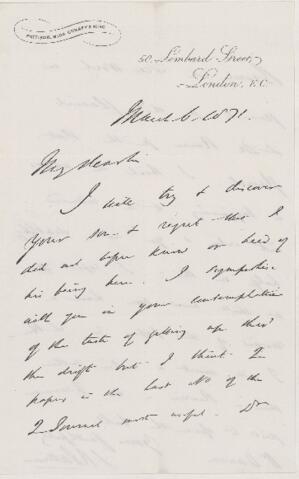 50, Lombard Street,
London, E.C.
March 6. 1871.
My dear Sir
I will try & discover
your son & regret that I
did not before know or heed of
his being here. I sympathise
with you in your contemplation
of the task of getting up
the drift but I think
papers in the last No of the
Q Journal most useful. Dr